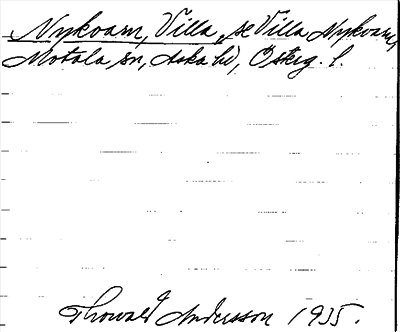 Nykvarn, Villa, se Villa Nykvarn,
Motala sn, Aska hd, Österg. l.
Thorvald Andersson 1935.